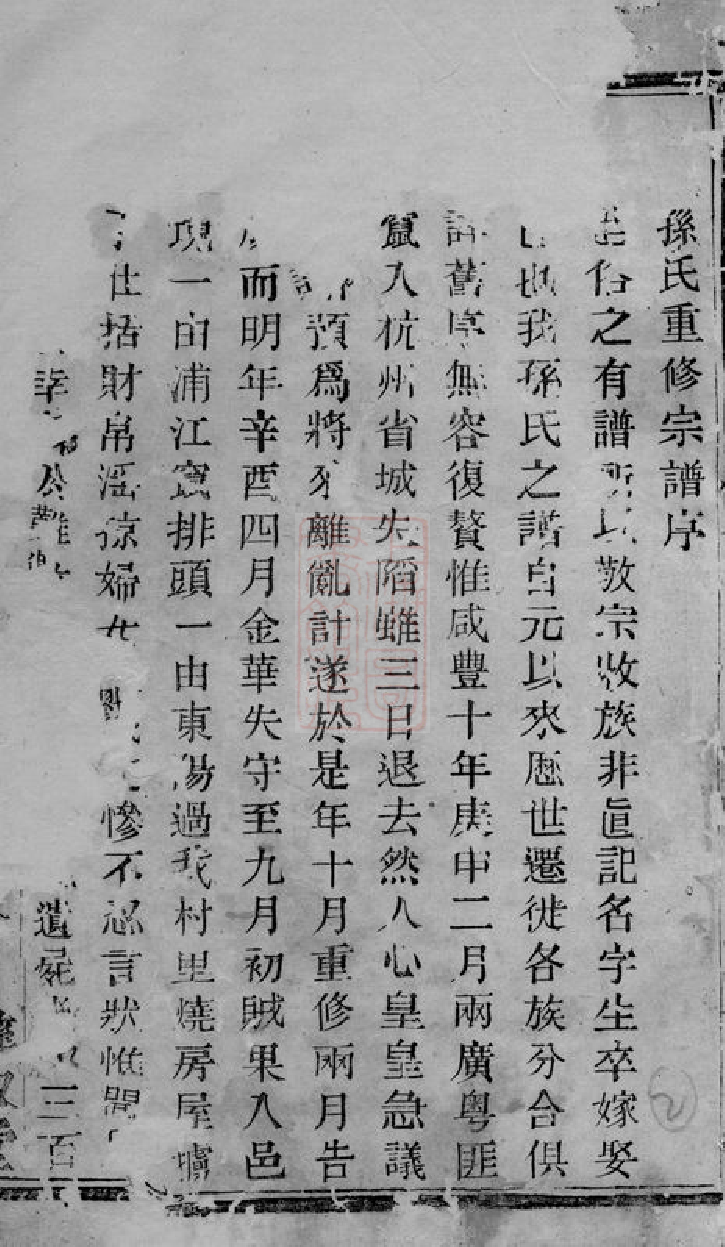 孫氏重修宗譜序
俗之有譜所以敬宗收族非直記名字生卒嫁娶
已也我孫氏之譜自元以來歷世遷徙各族分合俱
詳舊序無容復贅惟咸豐十年庚申二月兩廣粵匪
竄入杭州省城失陷雖三日退去然人心皇皇急議
預為將來離亂計遂於是年十月重修兩月告
而明年辛酉四月金華失守至九月初賊果入邑
現一由浦江竄排頭一由東陽過我村里燒房屋擄
括財帛淫掠婦女慘不忍言狀惟
公難遺屍三百